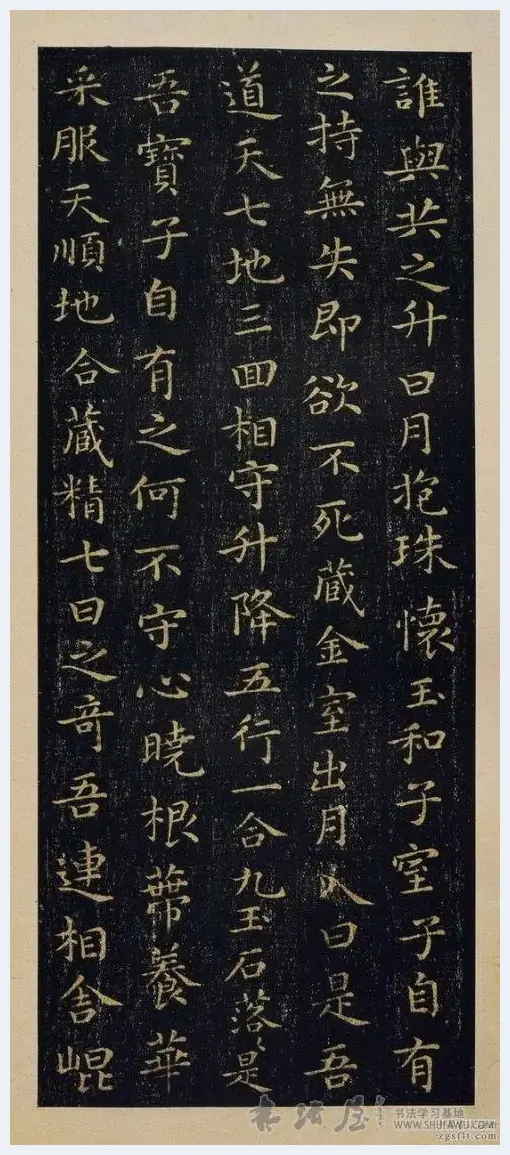 誰與共之升日月抱珠懷玉和子室子自有
之持無失即欲不死藏金室出月入日是吾
道天七地三回相守升降五行一合九玉石落〻是
吾寶子自有之何不守心曉根蔕養華
采服天順地合藏精七日之奇吾連相舍崐
书法屋
书法学习基地
WWW.SHUFAWU.COM
zgsf1t.com